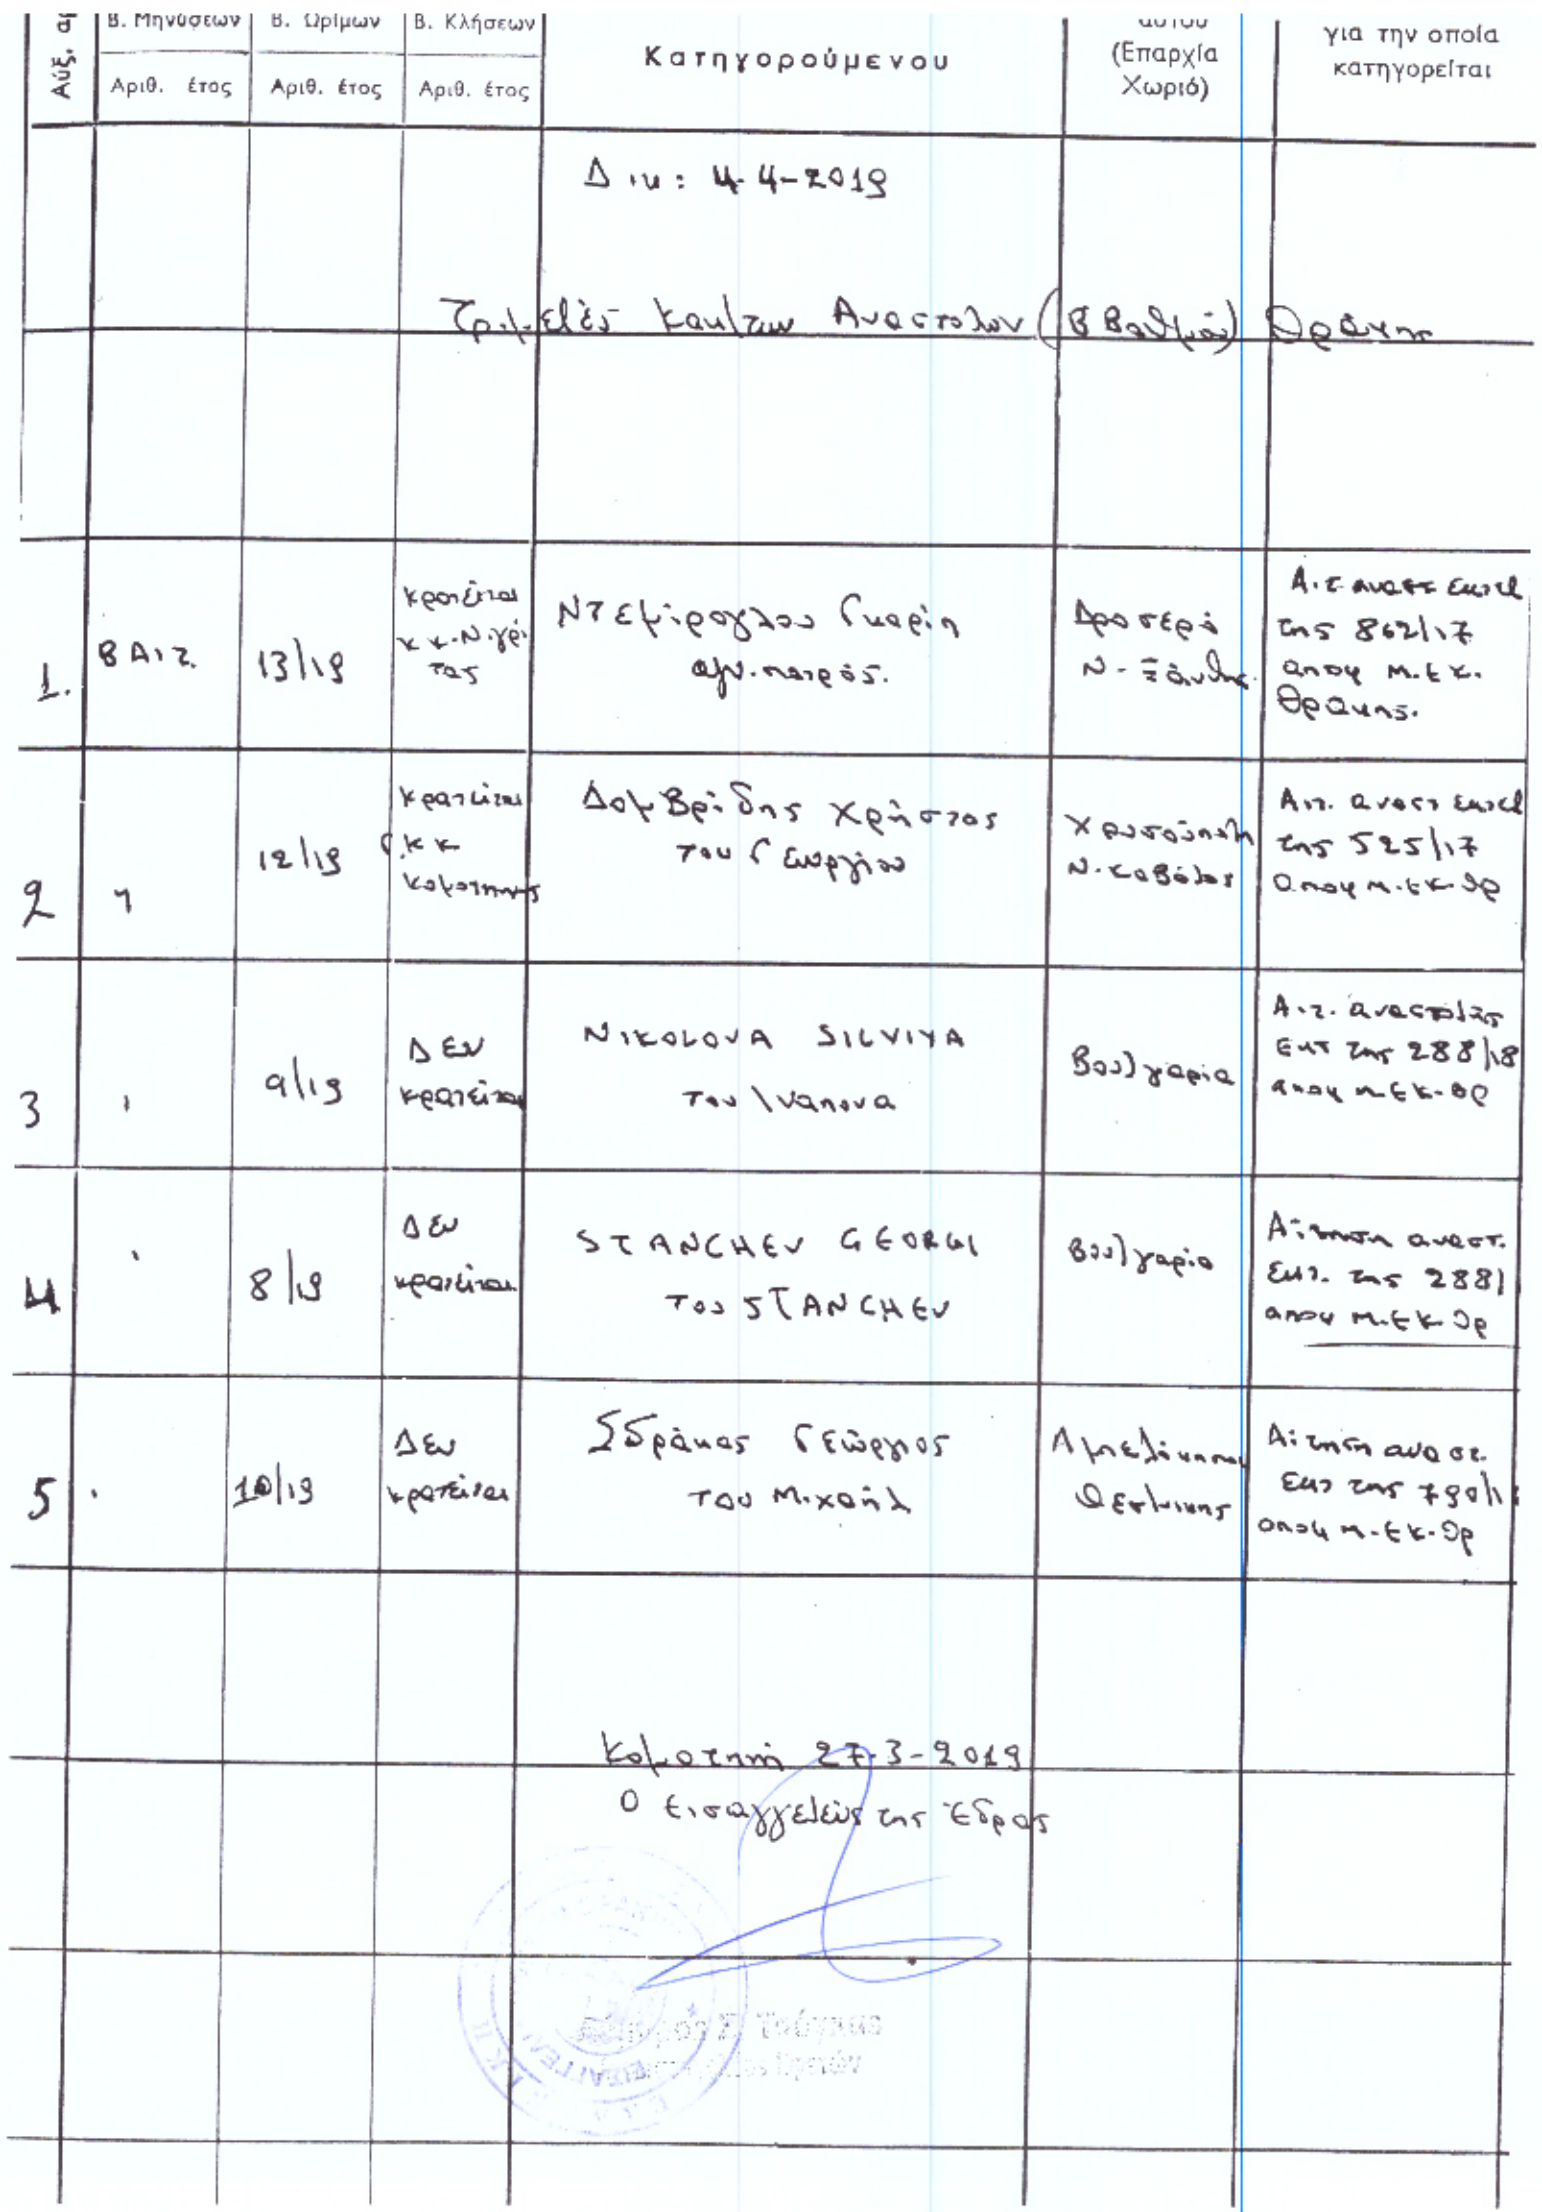 Αύξ. αρ
Β. Μηνύσεων
Β. Ωρίμων
Β. Κλήσεων
Αριθ. έτος
Αριθ. έτος
Αριθ. έτος
Κατηγορούμενου
αυτού
(Επαρχία
Χωριό)
για την οποία
κατηγορείται
Δικ: 4-4-2019
Τριμελές Κακ/των Αναστολών (Β Βαθμού) Θράκης
1.
Β Αιτ.
13/19
κρατείται
Κ.Κ. Νιγρί
τας
Ντεμίρογλου Γκαρίπ
αγν. πατρός.
Δροσερό
Ν. Ξάνθης.
Α.τ. αναστ εκτελ
της 862/17
αποφ Μ.Ε.Κ.
Θράκης.
2
"
12/19
κρατείται
Κ.Κ
Κομοτηνής
Δομβρίδης Χρήστος
του Γεωργίου
Χρυσούπολη
Ν. Καβάλας
Αιτ. αναστ εκτελ
της 525/17
αποφ Μ.Ε.Κ. Θρ
3
9/19
Δεν
κρατείται
NIKOLOVA SILVIYA
του Ivanova
Βουλγαρία
Α.τ. αναστολής
Εκτ της 288/18
αποφ Μ.Ε.Κ. Θρ
4
8/19
Δεν
κρατείται
STANCHEV GEORGI
του STANCHEV
Βουλγαρία
Αίτηση αναστ.
Εκτ. της 288/
αποφ Μ.Ε.Κ. Θρ
5
10/19
Δεν
κρατείται
Σδράκας Γεώργιος
του Μιχαήλ
Αμπελόκηποι
Θεσ/νικης
Αίτηση αναστ.
Εκτ της 790/1
αποφ Μ.Ε.Κ. Θρ
Κομοτηνή 27-3-2019
Ο Εισαγγελεύς της Έδρας